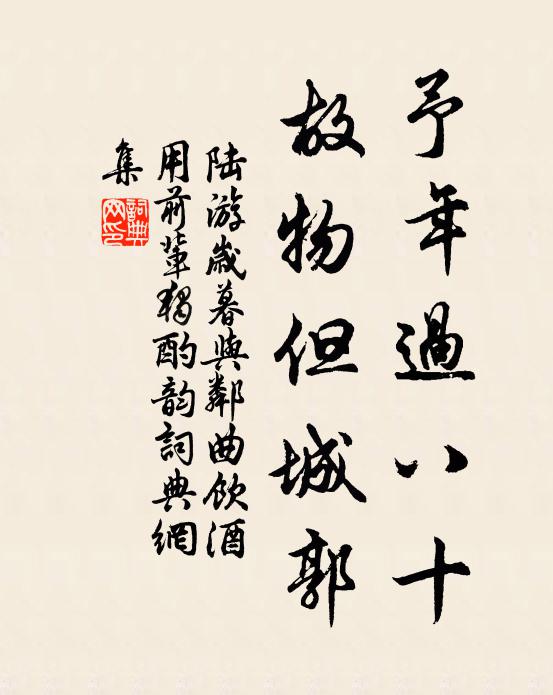 予年過八十
故物但城郭
陆游歲暮與鄰曲飲酒
用前輩獨酌韵詞典網
集
詞典網印